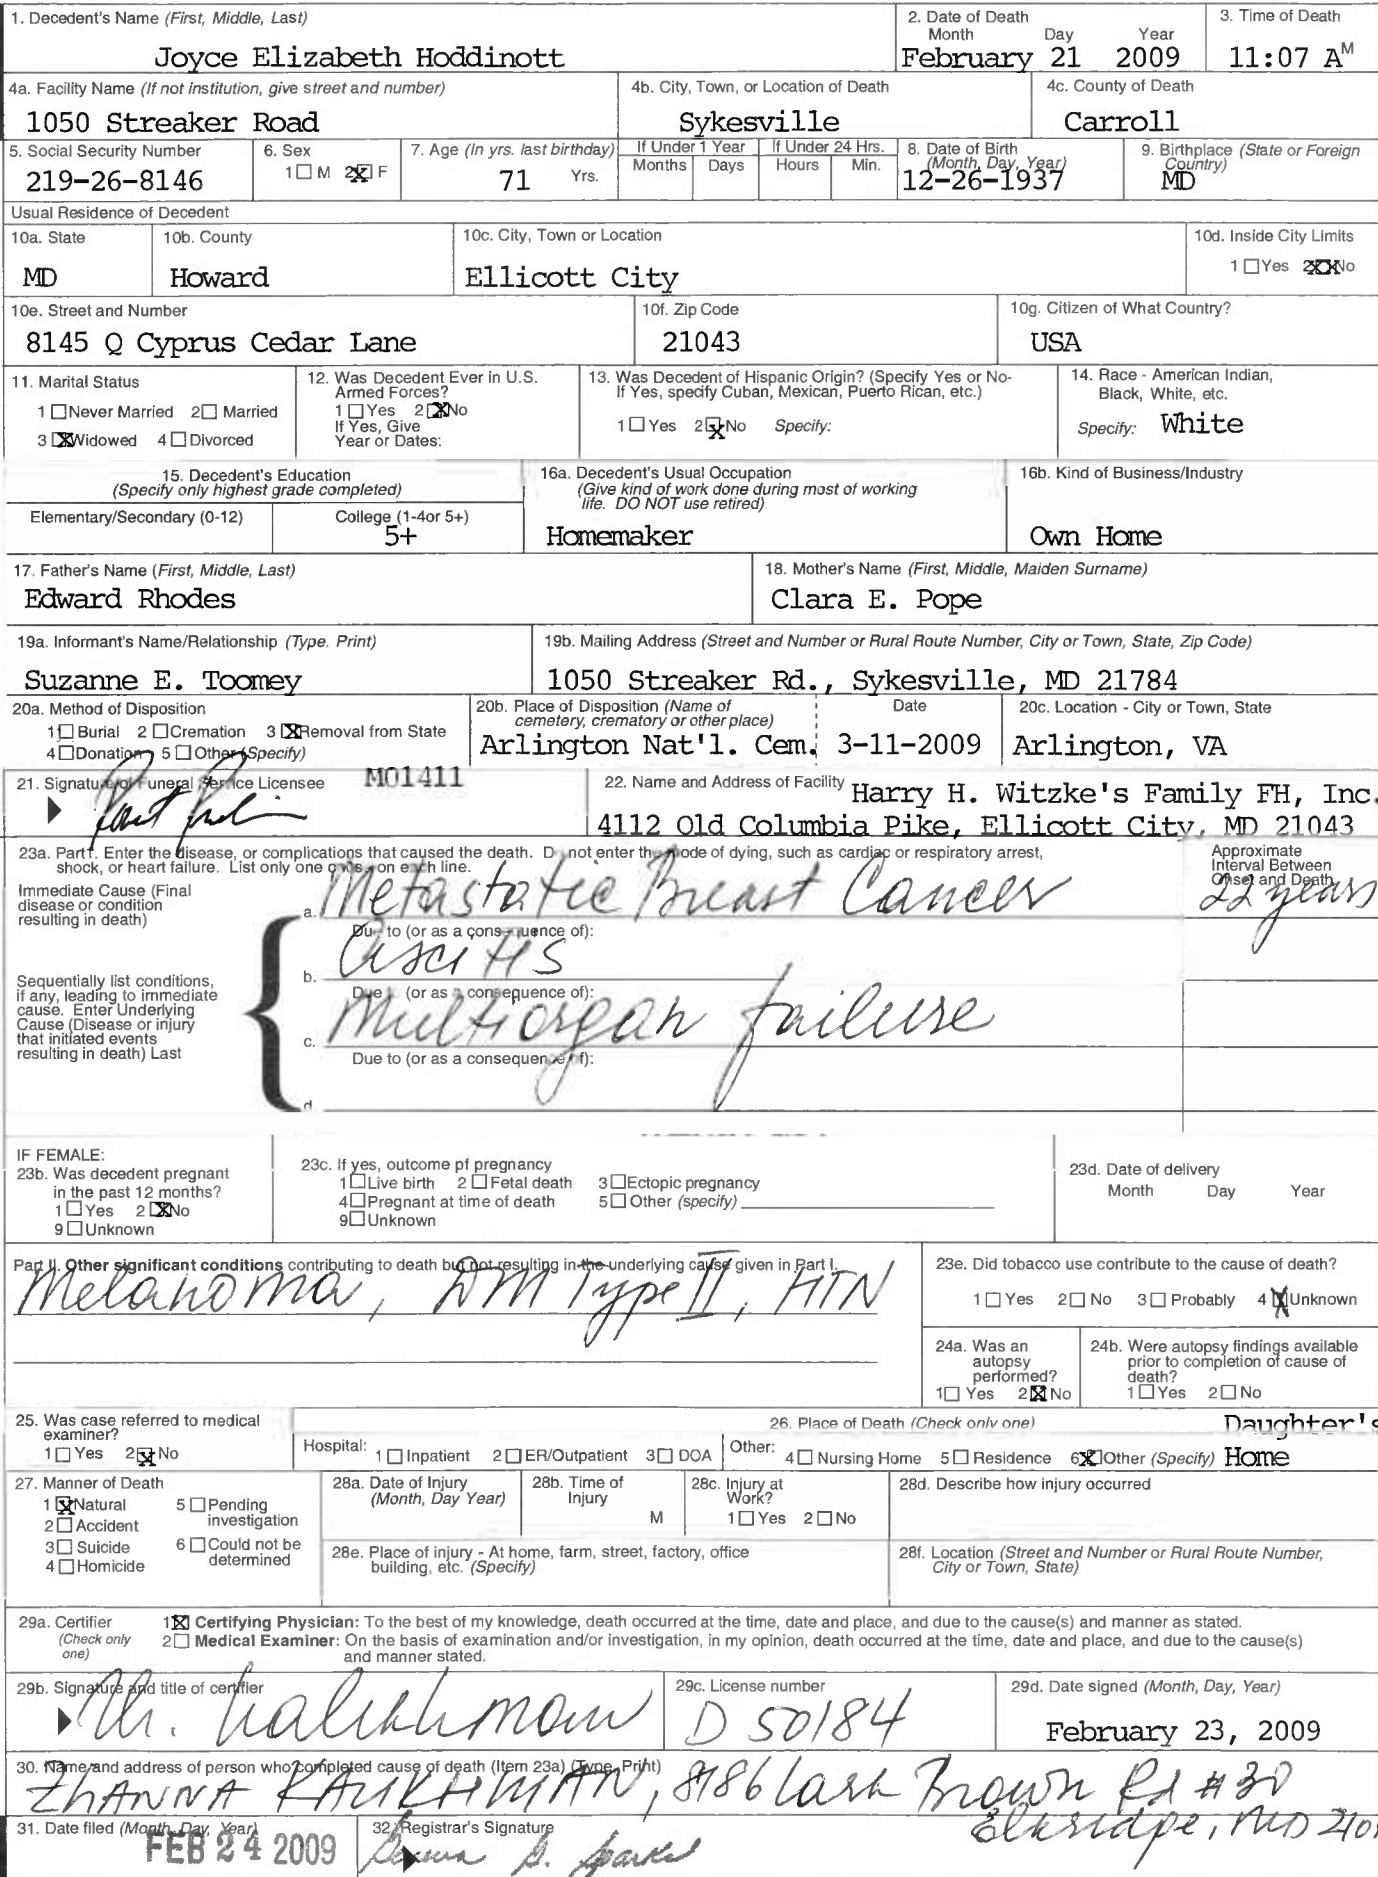 1. Decedent's Name (First, Middle, Last)
Joyce Elizabeth Hoddinott
2. Date of Death
Month Day Year
February 21 2009
3. Time of Death
11:07 A M
4a. Facility Name (If not institution, give street and number)
1050 Streaker Road
4b. City, Town, or Location of Death
Sykesville
4c. County of Death
Carroll
5. Social Security Number
219-26-8146
6. Sex
1 M 2 F
7. Age (In yrs. last birthday)
71 Yrs.
If Under 1 Year
Months Days
If Under 24 Hrs.
Hours Min.
8. Date of Birth
(Month, Day, Year)
12-26-1937
9. Birthplace (State or Foreign
Country)
MD
Usual Residence of Decedent
10a. State
MD
10b. County
Howard
10c. City, Town or Location
Ellicott City
10d. Inside City Limits
1 Yes 2 No
10e. Street and Number
8145 Q Cyprus Cedar Lane
10f. Zip Code
21043
10g. Citizen of What Country?
USA
11. Marital Status
1 Never Married 2 Married
3 X Widowed 4 Divorced
12. Was Decedent Ever in U.S.
Armed Forces?
1 Yes 2 X No
If Yes, Give
Year or Dates:
13. Was Decedent of Hispanic Origin? (Specify Yes or No-
If Yes, specify Cuban, Mexican, Puerto Rican, etc.)
1 Yes 2 X No Specify:
14. Race - American Indian,
Black, White, etc.
Specify: White
15. Decedent's Education
(Specify only highest grade completed)
Elementary/Secondary (0-12)
College (1-4or 5+)
5+
16a. Decedent's Usual Occupation
(Give kind of work done during most of working
life. DO NOT use retired)
Homemaker
16b. Kind of Business/Industry
Own Home
17. Father's Name (First, Middle, Last)
Edward Rhodes
18. Mother's Name (First, Middle, Maiden Surname)
Clara E. Pope
19a. Informant's Name/Relationship (Type. Print)
Suzanne E. Toomey
19b. Mailing Address (Street and Number or Rural Route Number, City or Town, State, Zip Code)
1050 Streaker Rd., Sykesville, MD 21784
20a. Method of Disposition
1 Burial 2 Cremation 3 X Removal from State
4 Donation 5 Other (Specify)
20b. Place of Disposition (Name of
cemetery, crematory or other place)
Arlington Nat'l. Cem.
Date
3-11-2009
20c. Location - City or Town, State
Arlington, VA
21. Signature of Funeral Service Licensee
M01411
22. Name and Address of Facility Harry H. Witzke's Family FH, Inc.
4112 Old Columbia Pike, Ellicott City, MD 21043
23a. Part I. Enter the disease, or complications that caused the death. Do not enter the mode of dying, such as cardiac or respiratory arrest,
shock, or heart failure. List only one cause on each line.
Approximate
Interval Between
Onset and Death
Immediate Cause (Final
disease or condition
resulting in death)
a. Metastatic Breast Cancer
22 years
Due to (or as a consequence of):
b. Ascitis
Due to (or as a consequence of):
c. Multiorgan failure
Due to (or as a consequence of):
d.
Sequentially list conditions,
if any, leading to immediate
cause. Enter Underlying
Cause (Disease or injury
that initiated events
resulting in death) Last
IF FEMALE:
23b. Was decedent pregnant
in the past 12 months?
1 Yes 2 X No
9 Unknown
23c. If yes, outcome pf pregnancy
1 Live birth 2 Fetal death 3 Ectopic pregnancy
4 Pregnant at time of death 5 Other (specify)
9 Unknown
23d. Date of delivery
Month Day Year
Part II. Other significant conditions contributing to death but not resulting in the underlying cause given in Part I.
Melanoma, DM Type II, HTN
23e. Did tobacco use contribute to the cause of death?
1 Yes 2 No 3 Probably 4 X Unknown
24a. Was an
autopsy
performed?
1 Yes 2 X No
24b. Were autopsy findings available
prior to completion of cause of
death?
1 Yes 2 No
25. Was case referred to medical
examiner?
1 Yes 2 X No
26. Place of Death (Check only one)
Hospital: 1 Inpatient 2 ER/Outpatient 3 DOA
Other: 4 Nursing Home 5 Residence 6 X Other (Specify)
Daughter's
Home
27. Manner of Death
1 X Natural 5 Pending
investigation
2 Accident
3 Suicide 6 Could not be
determined
4 Homicide
28a. Date of Injury
(Month, Day Year)
28b. Time of
Injury
M
28c. Injury at
Work?
1 Yes 2 No
28d. Describe how injury occurred
28e. Place of injury - At home, farm, street, factory, office
building, etc. (Specify)
28f. Location (Street and Number or Rural Route Number,
City or Town, State)
29a. Certifier
(Check only
one)
1 X Certifying Physician: To the best of my knowledge, death occurred at the time, date and place, and due to the cause(s) and manner as stated.
2 Medical Examiner: On the basis of examination and/or investigation, in my opinion, death occurred at the time, date and place, and due to the cause(s)
and manner stated.
29b. Signature and title of certifier
29c. License number
D 50184
29d. Date signed (Month, Day, Year)
February 23, 2009
30. Name and address of person who completed cause of death (Item 23a) (Type, Print)
ZHANNA KAUKHMAN, 8186 Lark Brown Rd #30
Elkridge, MD
31. Date filed (Month, Day, Year)
FEB 24 2009
32. Registrar's Signature